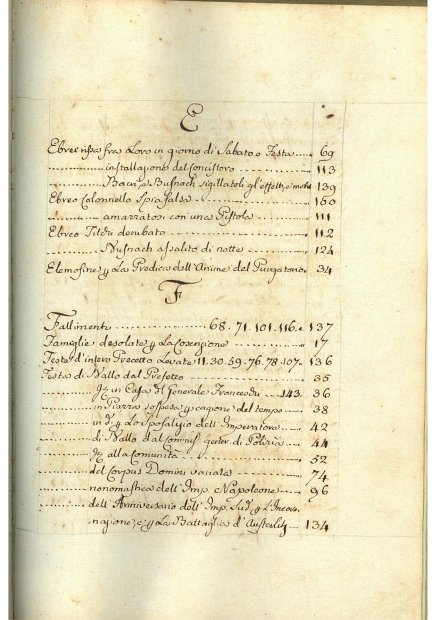 E
Ebrei rissa fra Loro in giorno di Sabato o Festa ..... 69
............ installazione del Concistoro ............ 113
............ Baci e Busnach sigillatoli gl'effetti, e mobi 139
Ebreo Colonnello Spia falsa ............ 150
............ amazzatosi con una Pistola ............ 111
Ebreo Titchi derubato ............ 112
............ Busnach assalito di notte ............ 124
Elemosine p. La Predica dell'Anime del Purgatorio. 34
F
Fallimenti ............ 68. 71. 101. 116. 137
Famiglie desolate p. La Coscrizione ............ 17
Feste d'intero Precetto Levate 11. 30. 59. 76. 78. 107. 136
Festa di Ballo dal Prefetto ............ 35
............ in Casa del Generale Franceschi .... 143. 36
............ in Piazza sospesa p. cagione del tempo .... 38
............ p. Lo Sposalizio dell'Imperatore ..... 42
............ di Ballo dal Commiss. gener. di Polizia ..... 44
............ alla Comunità ............ 52
............ del Corpus Domini variata ............ 74
............ nonomastica dell'Imp. Napoleone ..... 96
............ dell'Anniversario dell'Imp. Sud. p. L'Incoro=
nazione, e p. La Battaglia d'Austerlitz .... 134